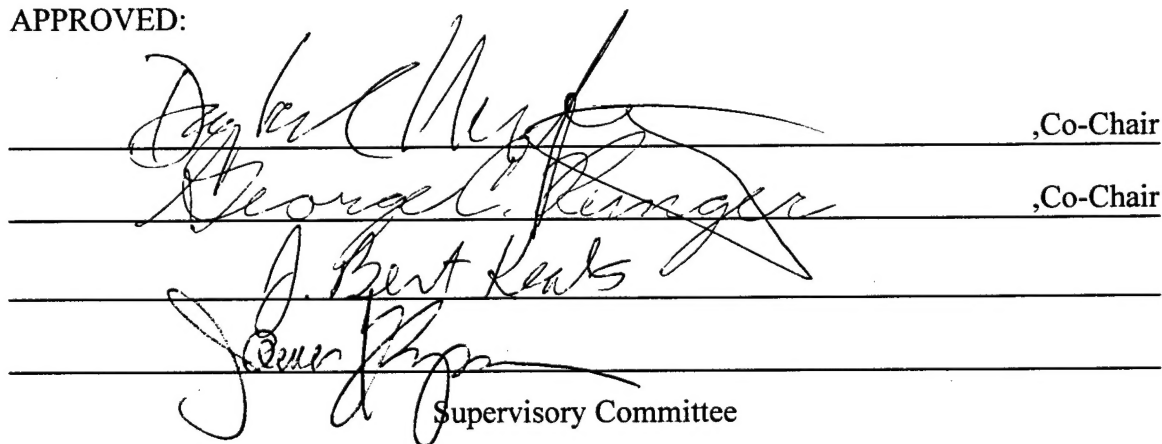 APPROVED:
,Co-Chair
George C. Runger ,Co-Chair
J. Bert Keats
James
Supervisory Committee